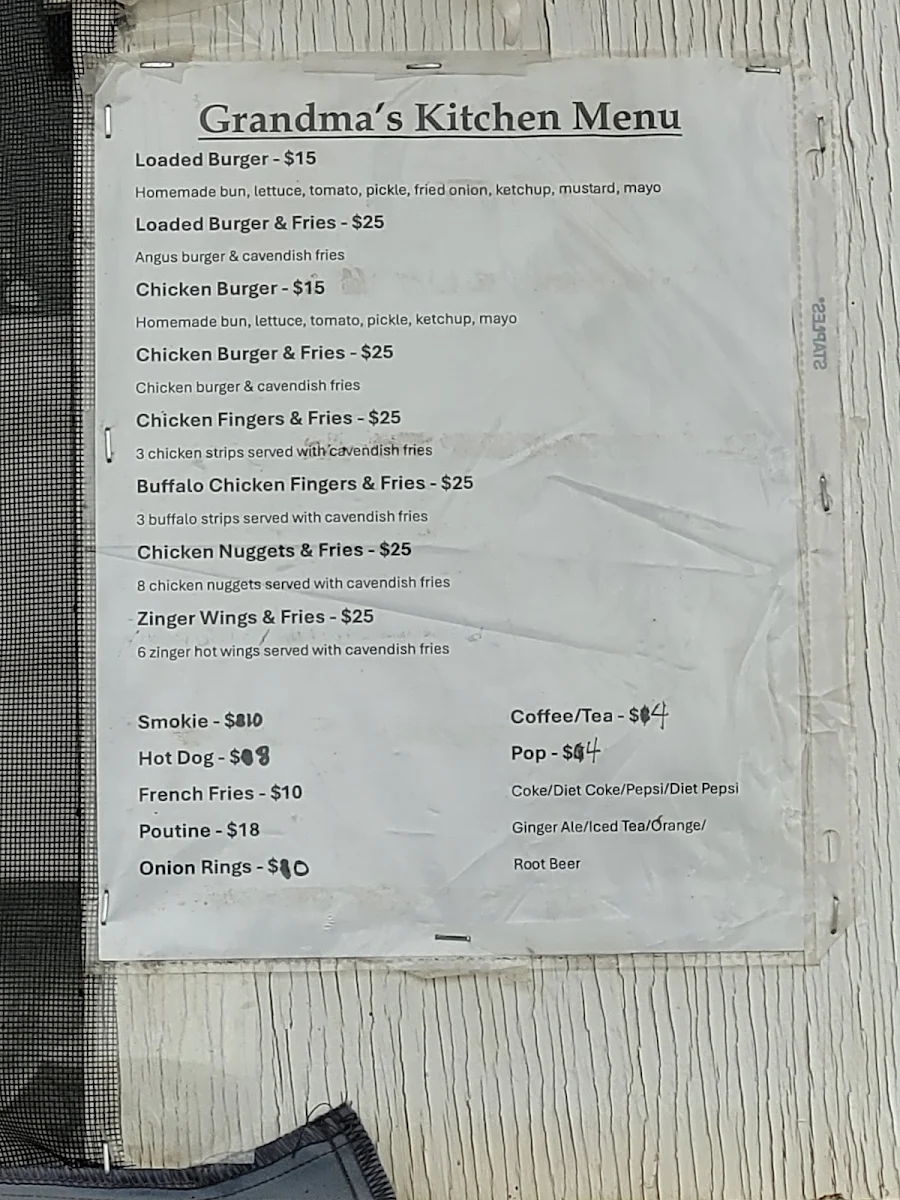 Grandma's Kitchen Menu
Loaded Burger - $15
Homemade bun, lettuce, tomato, pickle, fried onion, ketchup, mustard, mayo
Loaded Burger & Fries - $25
Angus burger & cavendish fries
Chicken Burger - $15
Homemade bun, lettuce, tomato, pickle, ketchup, mayo
Chicken Burger & Fries - $25
Chicken burger & cavendish fries
Chicken Fingers & Fries - $25
3 chicken strips served with cavendish fries
Buffalo Chicken Fingers & Fries - $25
3 buffalo strips served with cavendish fries
Chicken Nuggets & Fries - $25
8 chicken nuggets served with cavendish fries
Zinger Wings & Fries - $25
6 zinger hot wings served with cavendish fries
Smokie - $10
Hot Dog - $8
French Fries - $10
Poutine - $18
Onion Rings - $10
Coffee/Tea - $4
Pop - $4
Coke/Diet Coke/Pepsi/Diet Pepsi
Ginger Ale/Iced Tea/Orange/
Root Beer
STAPLES